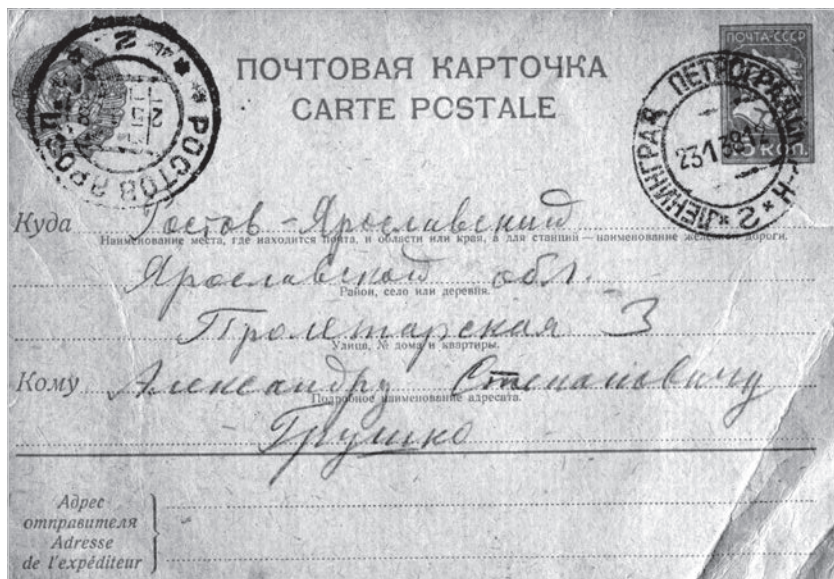 ПОЧТА-СССР
5 КОП.
ПОЧТОВАЯ КАРТОЧКА
CARTE POSTALE
РОСТОВ ЯРОСЛ.
ЛЕНИНГРАД ПЕТРОГРАДСК.
23 1 39
2
Куда Ростов-Ярославский
Наименование места, где находится почта, и области или края, а для станций — наименование железной дороги.
Ярославской обл.
Район, село или деревня.
Пролетарская 3
Улица, № дома и квартиры.
Кому Александру Степановичу
Подробное наименование адресата.
Грушко
Адрес
отправителя
Adresse
de l'expéditeur